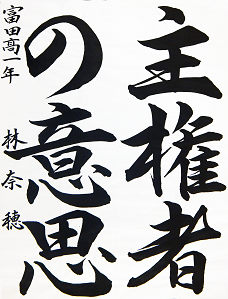 主権者
の意思
富田髙一年
林奈穂